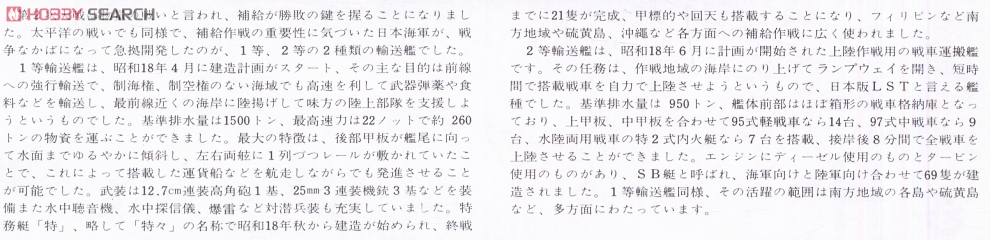 HOBBY SEARCH
いと言われ、補給が勝敗の鍵を握ることになりまし
た。太平洋の戦いでも同様で、補給作戦の重要性に気づいた日本海軍が、戦
争なかばになって急拠開発したのが、1等、2等の2種類の輸送艦でした。
1等輸送艦は、昭和18年4月に建造計画がスタート、その主な目的は前線
への強行輸送で、制海権、制空権のない海域でも高速を利して武器弾薬や食
料などを輸送し、最前線近くの海岸に陸揚げして味方の陸上部隊を支援しよ
うというものでした。基準排水量は1500トン、最高速力は22ノットで約 260
トンの物資を運ぶことができました。最大の特徴は、後部甲板が艦尾に向っ
て水面までゆるやかに傾斜し、左右両舷に1列づつレールが敷かれていたこ
とで、これによって搭載した運貨船などを航走しながらでも発進させること
が可能でした。武装は12.7cm連装高角砲1基、25mm3連装機銃3基などを装
備また水中聴音機、水中探信儀、爆雷など対潜兵装も充実していました。特
務艇「特」、略して「特々」の名称で昭和18年秋から建造が始められ、終戦
までに21隻が完成、甲標的や回天も搭載することになり、フィリピンなど南
方地域や硫黄島、沖縄など各方面への補給作戦に広く使われました。
2等輸送艦は、昭和18年6月に計画が開始された上陸作戦用の戦車運搬艦
です。その任務は、作戦地域の海岸にのり上げてランプウェイを開き、短時
間で搭載戦車を自力で上陸させようというもので、日本版LSTと言える艦
種でした。基準排水量は 950トン、艦体前部はほぼ箱形の戦車格納庫となっ
ており、上甲板、中甲板を合わせて95式軽戦車なら14台、97式中戦車なら9
台、水陸両用戦車の特2式内火艇なら7台を搭載、接岸後8分間で全戦車を
上陸させることができました。エンジンにディーゼル使用のものとタービン
使用のものがあり、SB艇と呼ばれ、海軍向けと陸軍向け合わせて69隻が建
造されました。1等輸送艦同様、その活躍の範囲は南方地域の各島や硫黄島
など、多方面にわたっています。